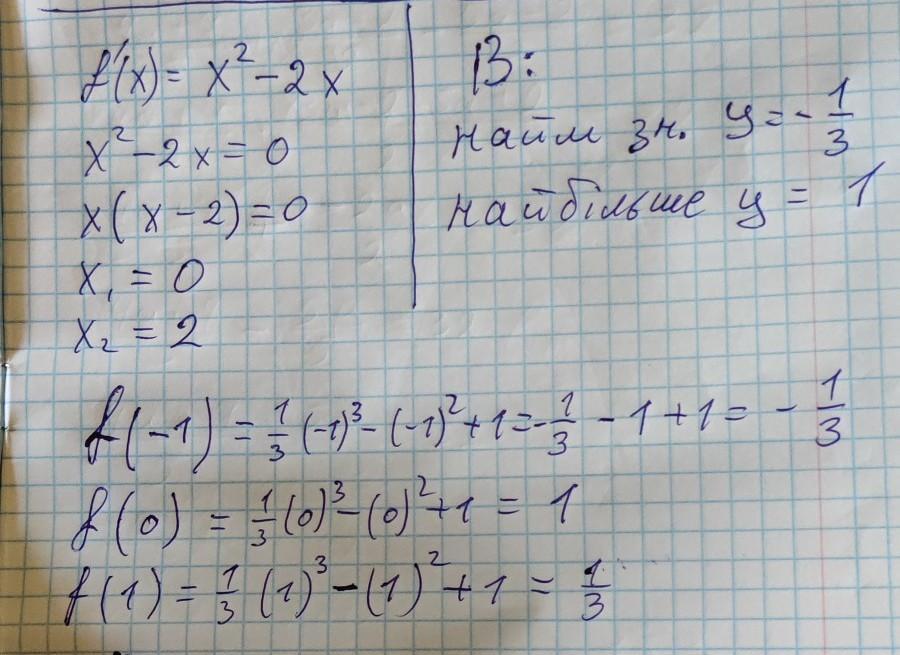 f'(x) = x² - 2x
x² - 2x = 0
x(x - 2) = 0
x₁ = 0
x₂ = 2
В:
найм зн. y = - 1/3
найбільше y = 1
f(-1) = 1/3 (-1)³ - (-1)² + 1 = - 1/3 - 1 + 1 = - 1/3
f(0) = 1/3 (0)³ - (0)² + 1 = 1
f(1) = 1/3 (1)³ - (1)² + 1 = 1/3